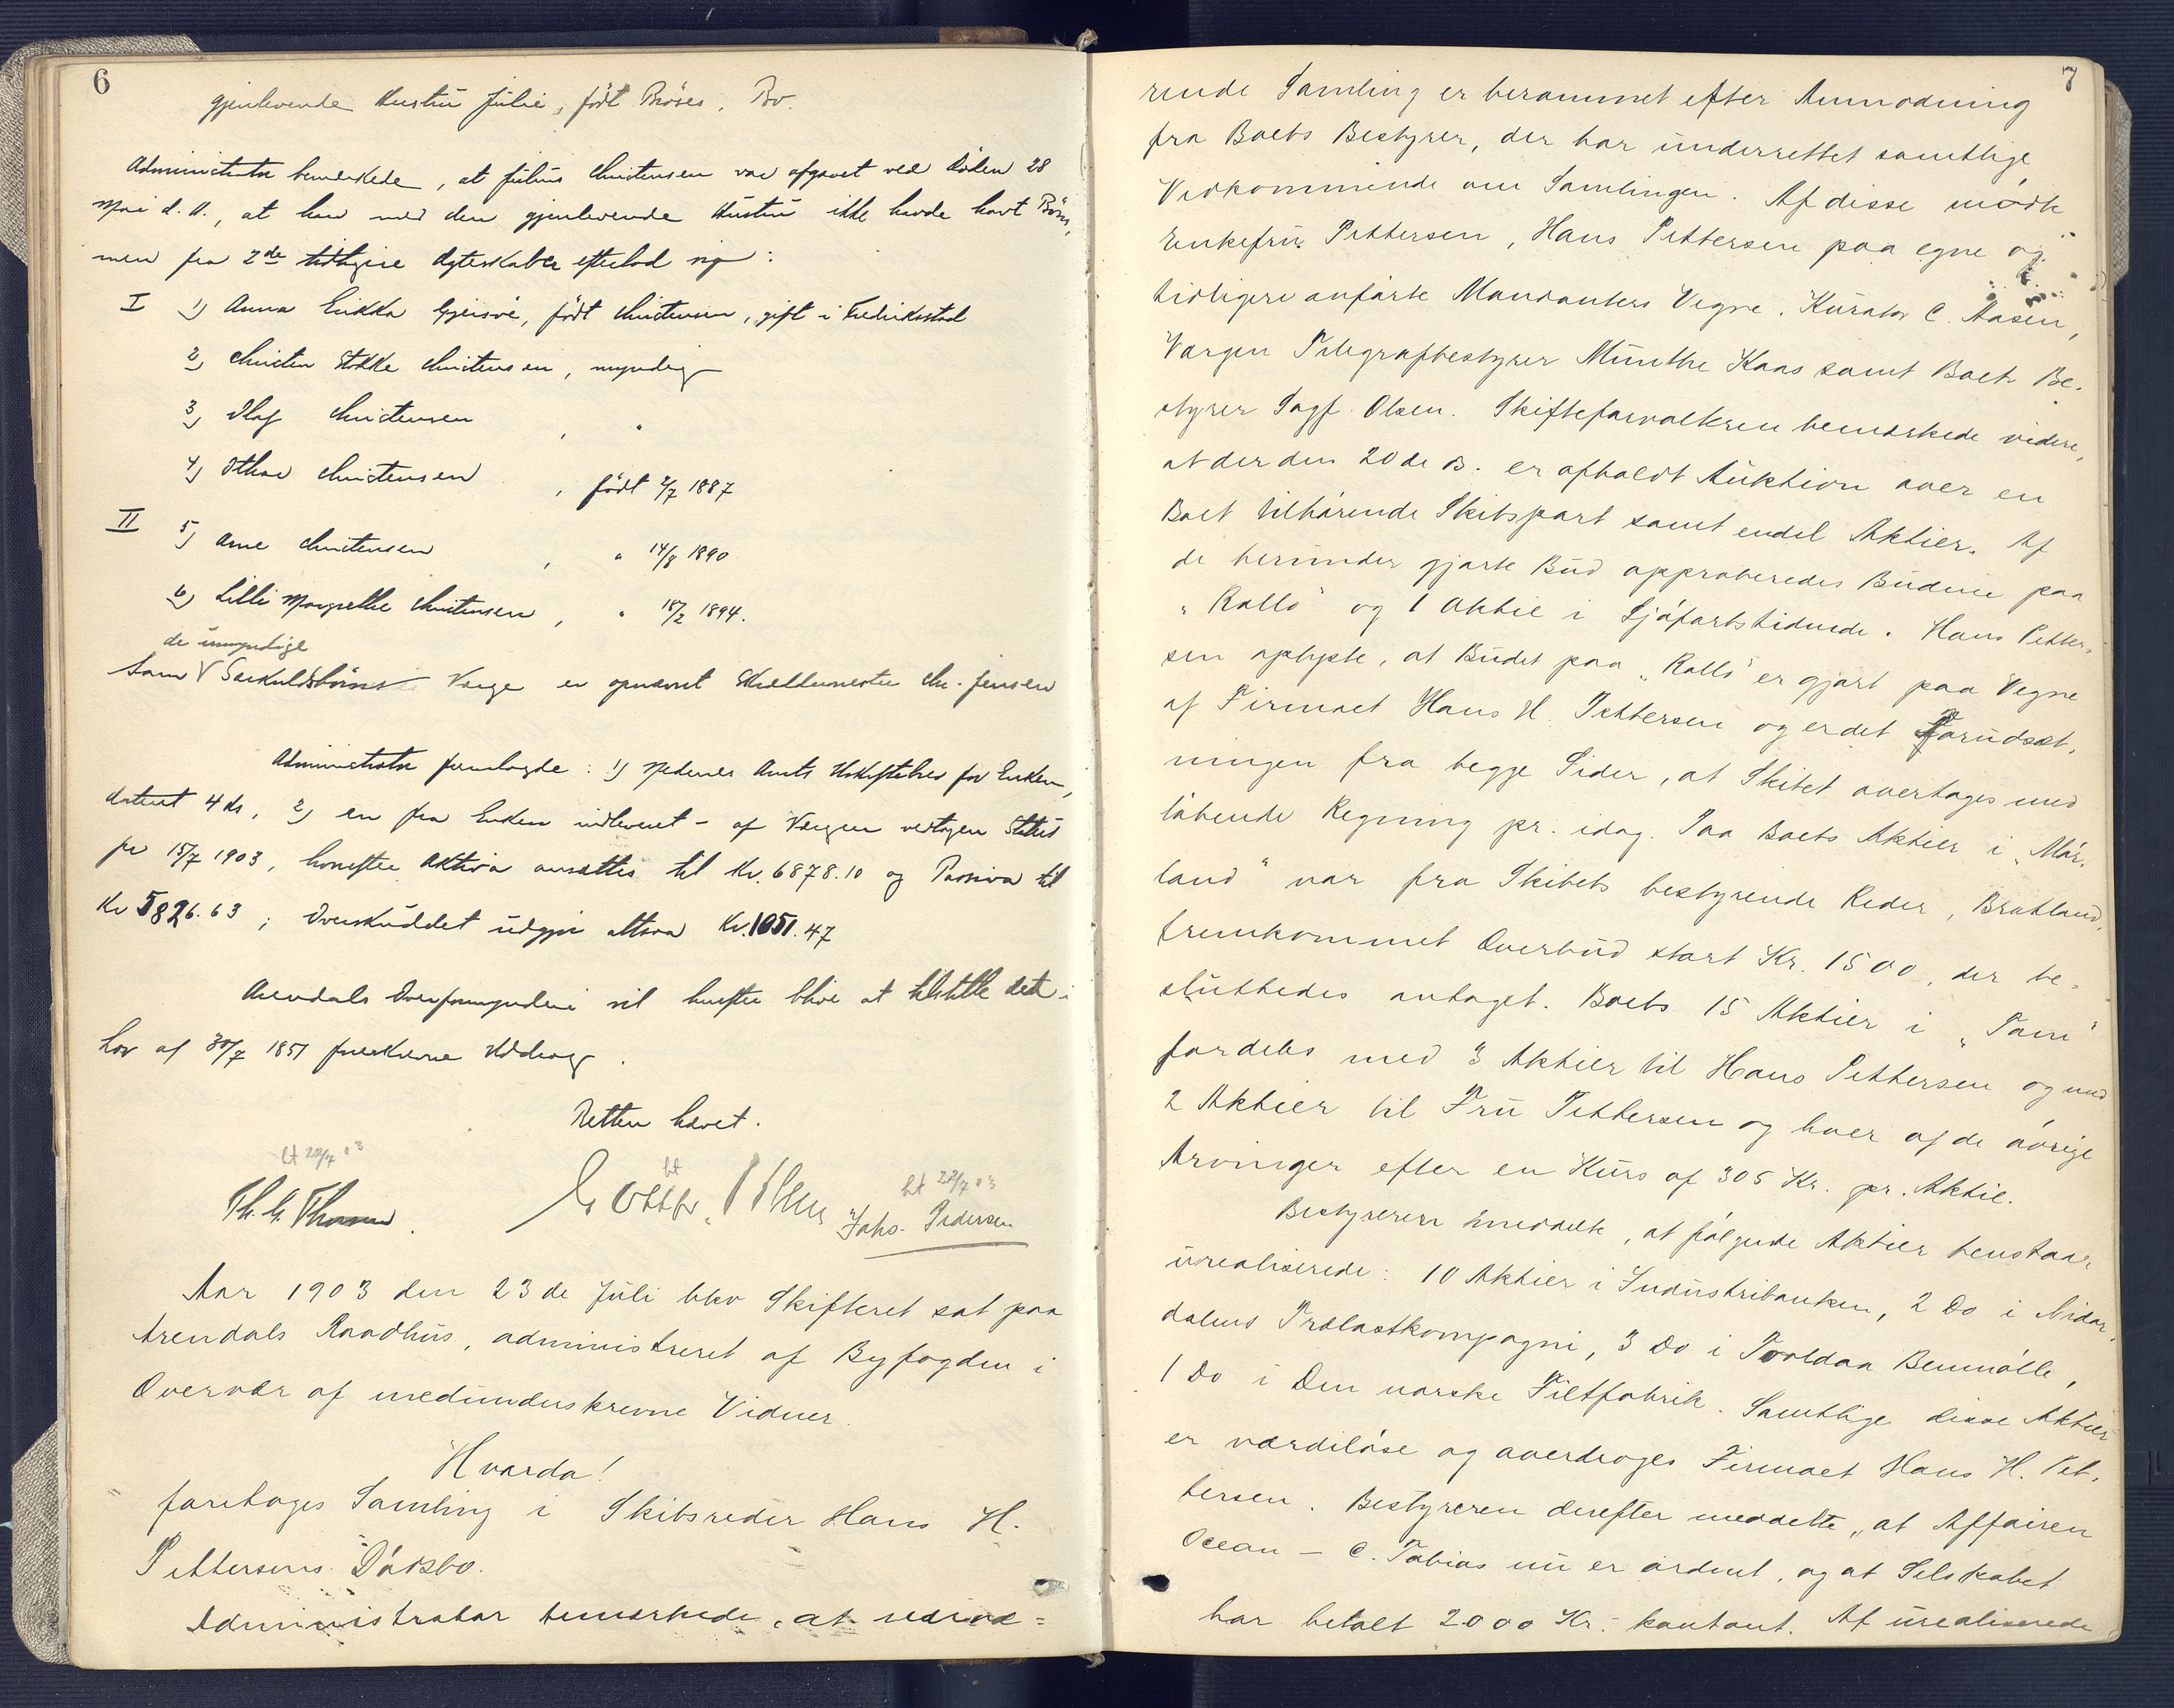 6
gjenlevende Hustrü Julie, født Röser, Bo.
Administrator bemærkede, at Julius Christensen var afgaaet ved Døden 28
Mai d. A., at han med den gjenlevende Hüstrü ikke havde havt Børn,
men fra 2de tidligere Ægteskaber efterlod sig:
I 1) Anna Erikka Gjeruø, født Christensen, gift i Fredriksstad
2) Christen Stokke Christensen, myndig
3) Olaf Christensen , "
4) Othar Christensen , født 2/7 1887
II 5) Arne Christensen , " 14/8 1890
6) Lilli Margrethe Christensen , " 18/2 1894.
de ümyndige
Som V Særkuldsbørns Værge er opnævnt Skræddermester Chr. Jensen
Administrator fremlagde: 1) Nedenes Amts Uskiftebrev for Enken,
datert 4 ds, 2) en fra Enken indleveret - af Værgen vedtagen Status
pr 15/7 1903, hvorefter Aktiva ansættes til Kr. 6878.10 og Passiva til
Kr 5826.63; Overskuddet udgjør altsaa Kr. 1051.47
Arendals Overformynderi vil herefter blive at tilstille det i
Lov af 30/7 1851 foreskrevne Uddrag.
Retten hævet.
lt 22/7 03
Th. G. Thomsen. lt lt 22/7 03
Johs. Pedersen
Aar 1903 den 23de Jüli blev Skifteret sat paa
Arendals Raadhüs, administreret af Byfogden i
Overvær af medünderskrevne Vidner.
Hvorda!
foretoges Samling i Skibsreder Hans H.
Pettersens Dødsbo.
Administrator bemærkede, at nærvæ=
7
rende Samling er berammet efter Anmodning
fra Boets Bestyrer, der har ünderrettet samtlige
Vedkommende om Samlingen. Af disse mødte
Enkefrü Pettersen, Hans Pettersen paa egne og
tidligere anførte Mandanters Vegne, Kürator C. Aasen,
Værgen Telegrafbestyrer Münthe Kaas samt Boets Be-
styrer Sagf. Olsen. Skifteforvalteren bemærkede videre,
at der den 20de ds. er afholdt Aüktion over en
Boet tilhørende Skibspart samt endel Aktier. Af
de heründer gjorte Büd approberedes Büdene paa
"Rollo" og 1 Aktie i Sjøfartstidende. Hans Petter-
sen oplyste, at Büdet paa "Rollo" er gjort paa Vegne
af Firmaet Hans H. Pettersen og er det Forüdsæt-
ningen fra begge Sider, at Skibet overtages med
løbende Regning pr. idag. Paa Boets Aktier i "Mør-
land" var fra Skibets bestyrende Reder, Bratland,
fremkommet Overbüd stort Kr. 1500, der be-
slüttedes antaget. Boets 15 Aktier i "Tam"
fordeles med 3 Aktier til Hans Pettersen og med
2 Aktier til Frü Pettersen og hver af de øvrige
Arvinger efter en Kürs af 305 Kr. pr. Aktie.
Bestyreren meddelte, at følgende Aktier henstaar
ürealiserede: 10 Aktier i Indüstribanken, 2 Do i Nidar-
dalens Trælastkompagni, 3 Do i Tvoldaa Benmølle,
1 Do i Den norske Filtfabrik. Samtlige disse Aktier
er værdiløse og overdroges Firmaet Hans H. Pet-
tersen. Bestyreren derefter meddelte, at Affairen
Ocean - C. Tobias nü er ordnet, og at Selskabet
har betalt 2000 Kr. kontant. Af ürealiserede